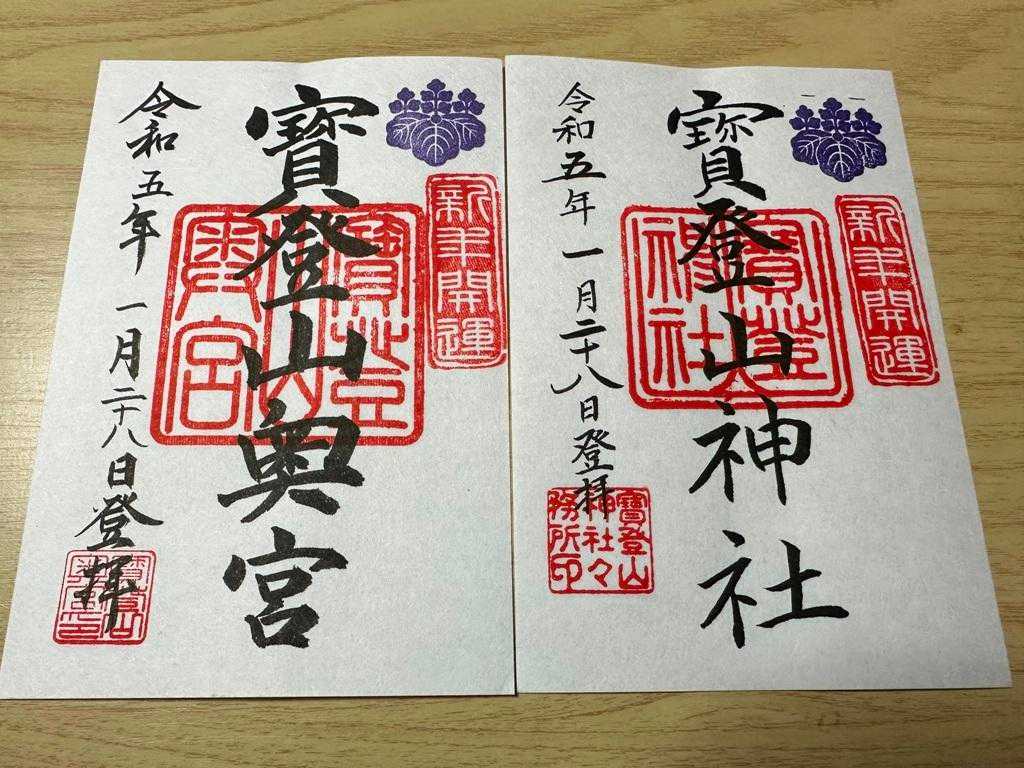 新年開運
寳登山神社
寶登山神社
令和五年一月二十八日登拝
寶登山神社々務所印
新年開運
寳登山奥宮
寶登山奥宮
令和五年一月二十八日登拝